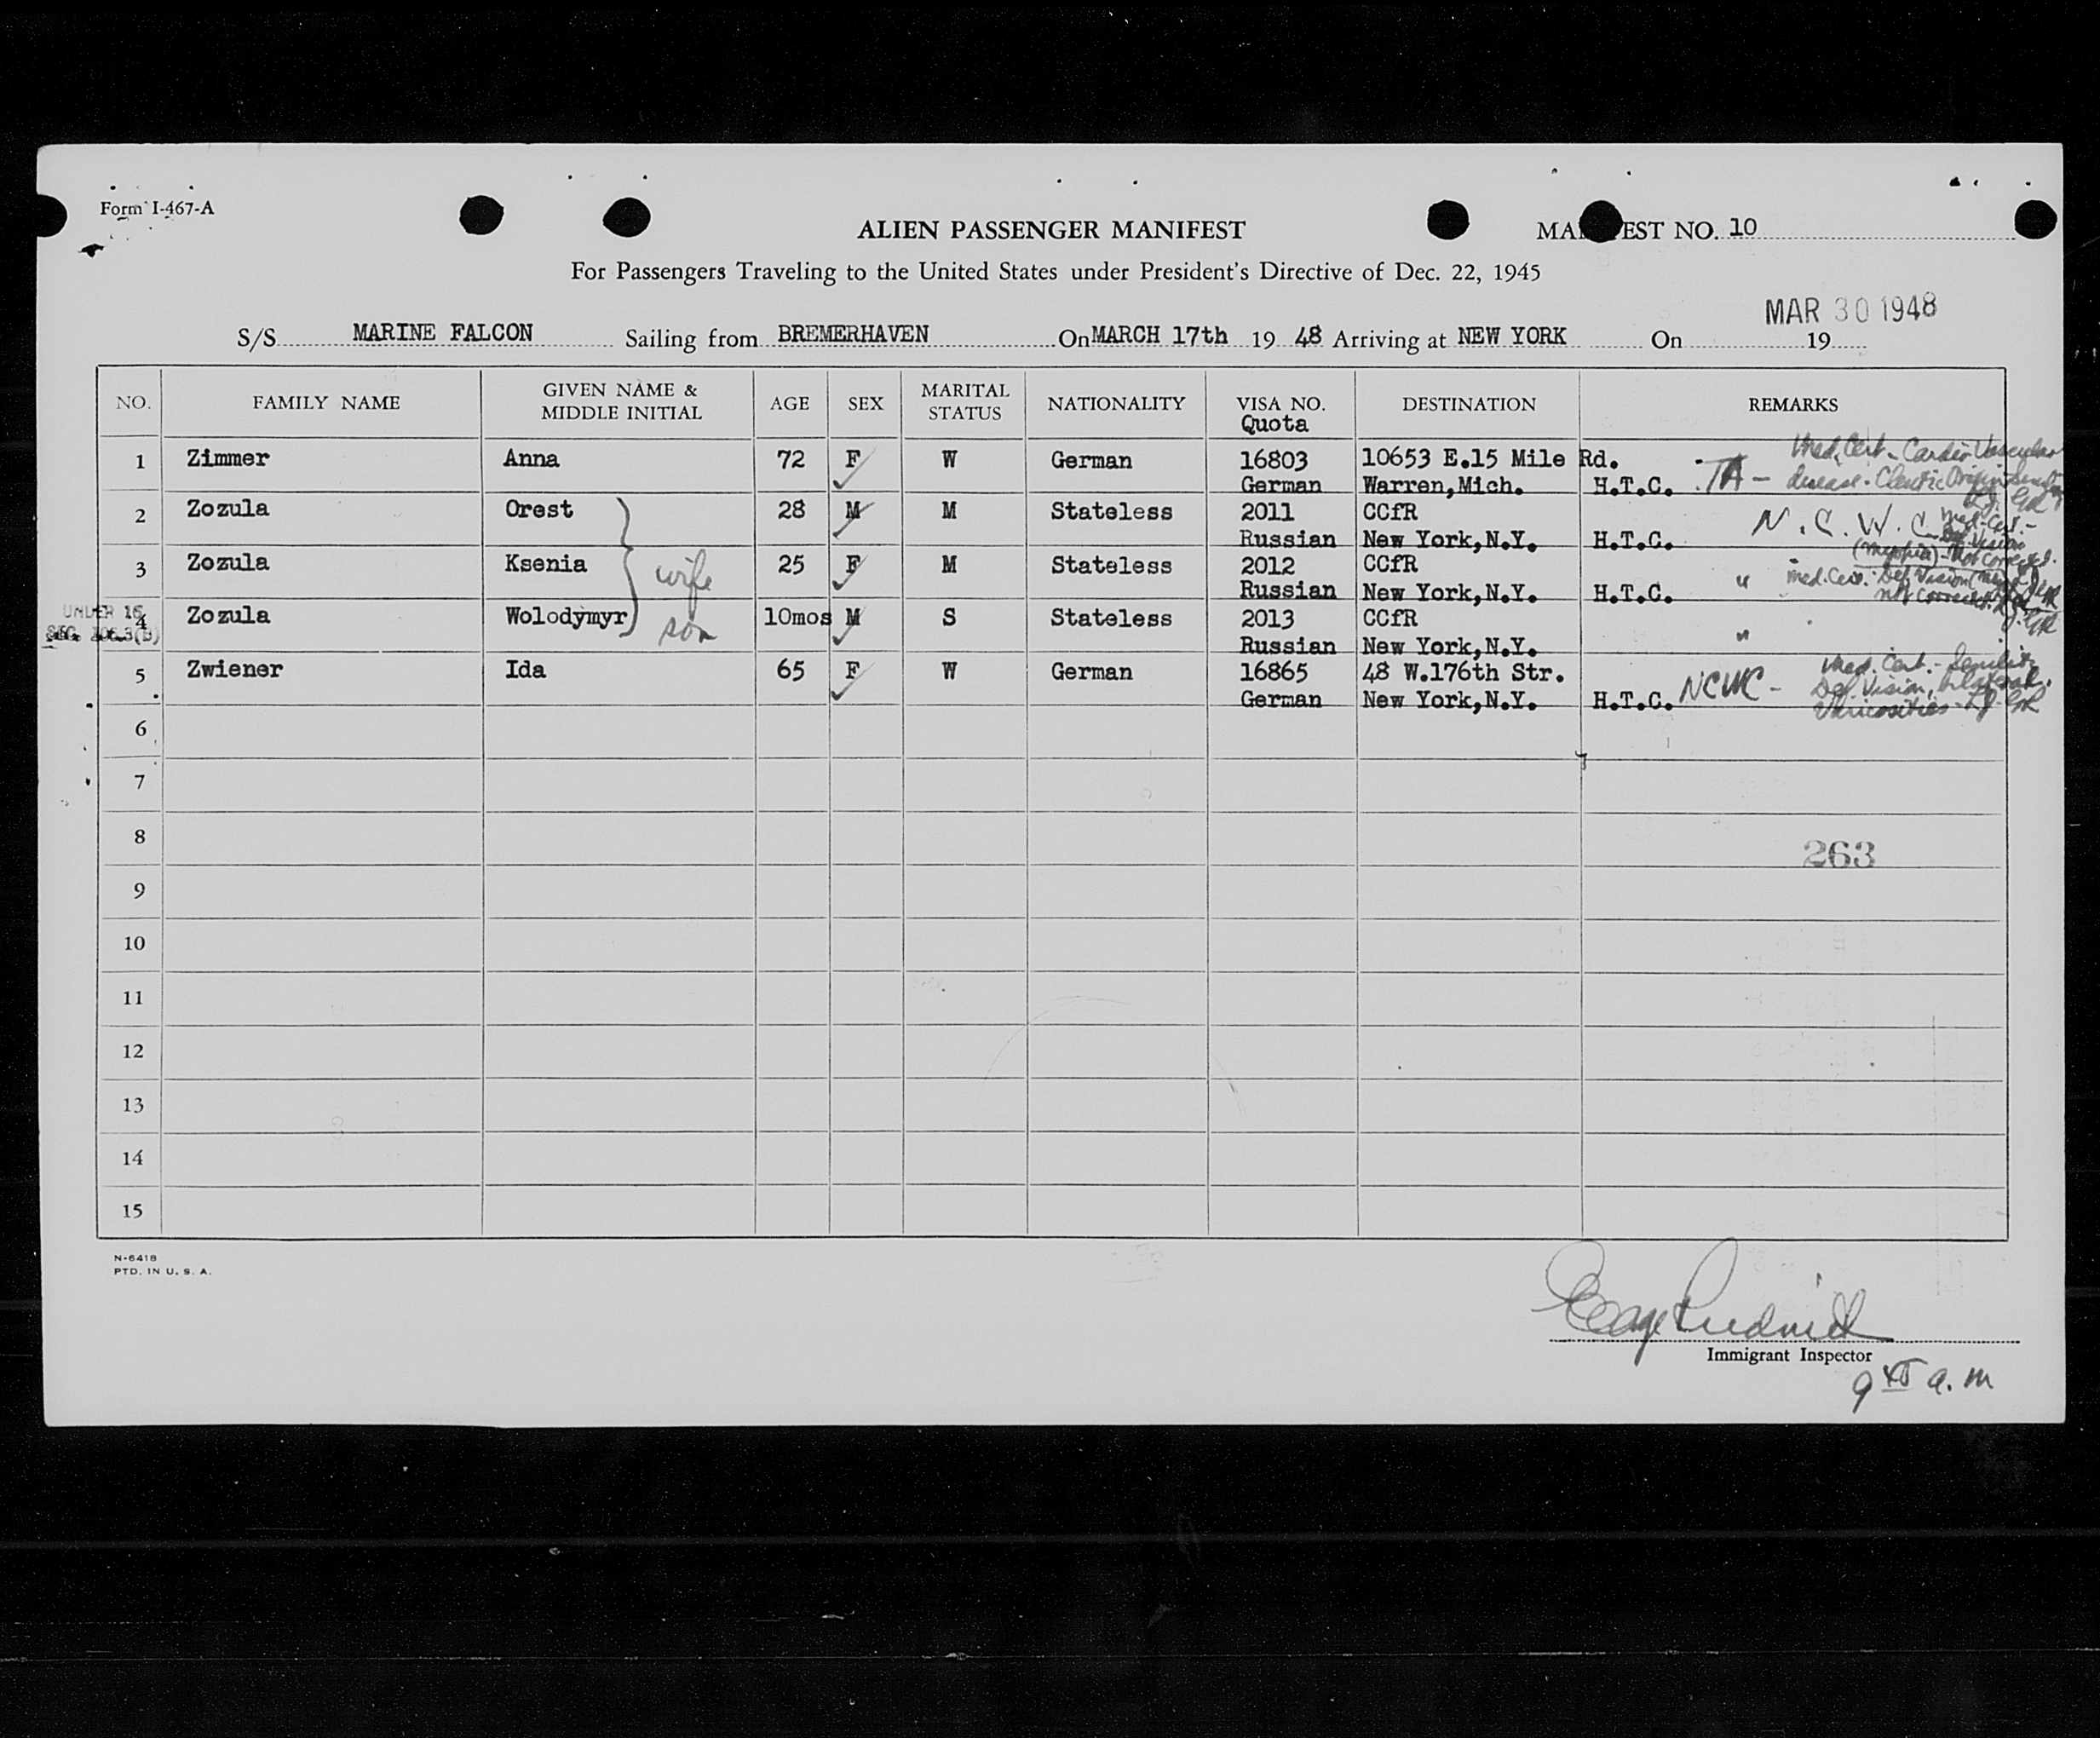 Form I-467-A
ALIEN PASSENGER MANIFEST
MA EST NO. 10
For Passengers Traveling to the United States under President's Directive of Dec. 22, 1945
MAR 30 1948
S/S MARINE FALCON Sailing from BREMERHAVEN On MARCH 17th 19 48 Arriving at NEW YORK On 19
NO. FAMILY NAME GIVEN NAME & MIDDLE INITIAL AGE SEX MARITAL STATUS NATIONALITY VISA NO. Quota DESTINATION REMARKS
1 Zimmer Anna 72 F W German 16803 10653 E.15 Mile Rd. Med. Cert. - Cardio Vascular
German Warren, Mich. H.T.C. TA - disease.
2 Zozula Orest 28 M M Stateless 2011 CCfR N.C.W.C. Med. Cert. -
Russian New York,N.Y. H.T.C. Def. Vision
(myopia) - Not corrected.
3 Zozula Ksenia wife 25 F M Stateless 2012 CCfR
Russian New York,N.Y. H.T.C. " Med. Cert. - Def. Vision
not corrected.
UNDER 16
4 Zozula Wolodymyr son 10mos M S Stateless 2013 CCfR
Russian New York,N.Y. "
5 Zwiener Ida 65 F W German 16865 48 W.176th Str. Med. Cert. - Senility
German New York,N.Y. H.T.C. NCWC - Def. Vision, bilateral.
Varicosities
6
7
8
263
9
10
11
12
13
14
15
N-6418
PTD. IN U. S. A.
Immigrant Inspector
9 45 a.m